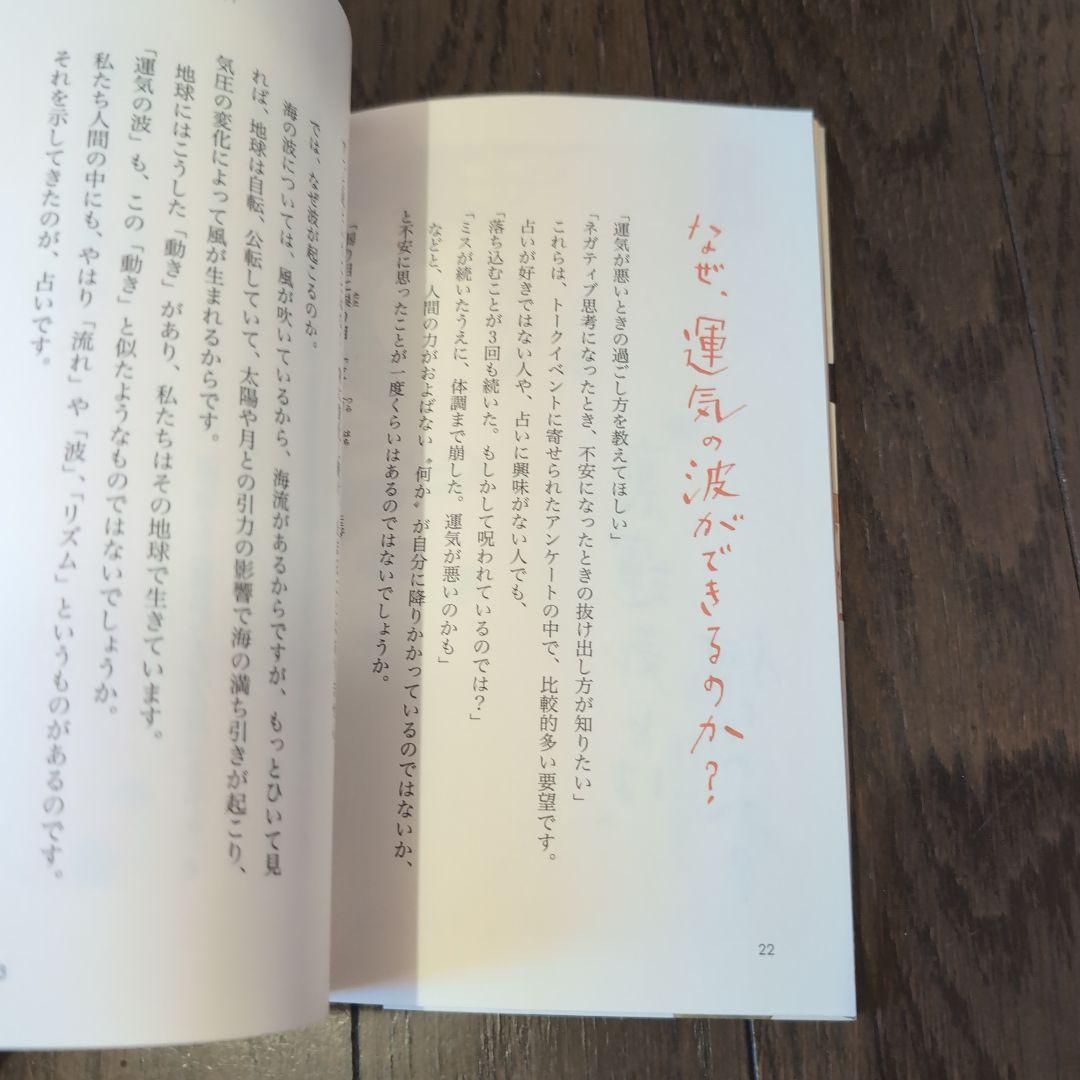 なぜ、運気の波ができるのか?
「運気が悪いときの過ごし方を教えてほしい」
「ネガティブ思考になったとき、不安になったときの抜け出し方が知りたい」
これらは、トークイベントに寄せられたアンケートの中で、比較的多い要望です。
占いが好きではない人や、占いに興味がない人でも、
「落ち込むことが3回も続いた。もしかして呪われているのでは?」
「ミスが続いたうえに、体調まで崩した。運気が悪いのかも」
などと、人間の力がおよばない〝何か〟が自分に降りかかっているのではないか、
と不安に思ったことが一度くらいはあるのではないでしょうか。
22
では、なぜ波が起こるのか。
海の波については、風が吹いているから、海流があるからですが、もっとひいて見
れば、地球は自転、公転していて、太陽や月との引力の影響で海の満ち引きが起こり、
気圧の変化によって風が生まれるからです。
地球にはこうした「動き」があり、私たちはその地球で生きています。
「運気の波」も、この「動き」と似たようなものではないでしょうか。
私たち人間の中にも、やはり「流れ」や「波」、「リズム」というものがあるのです。
それを示してきたのが、占いです。